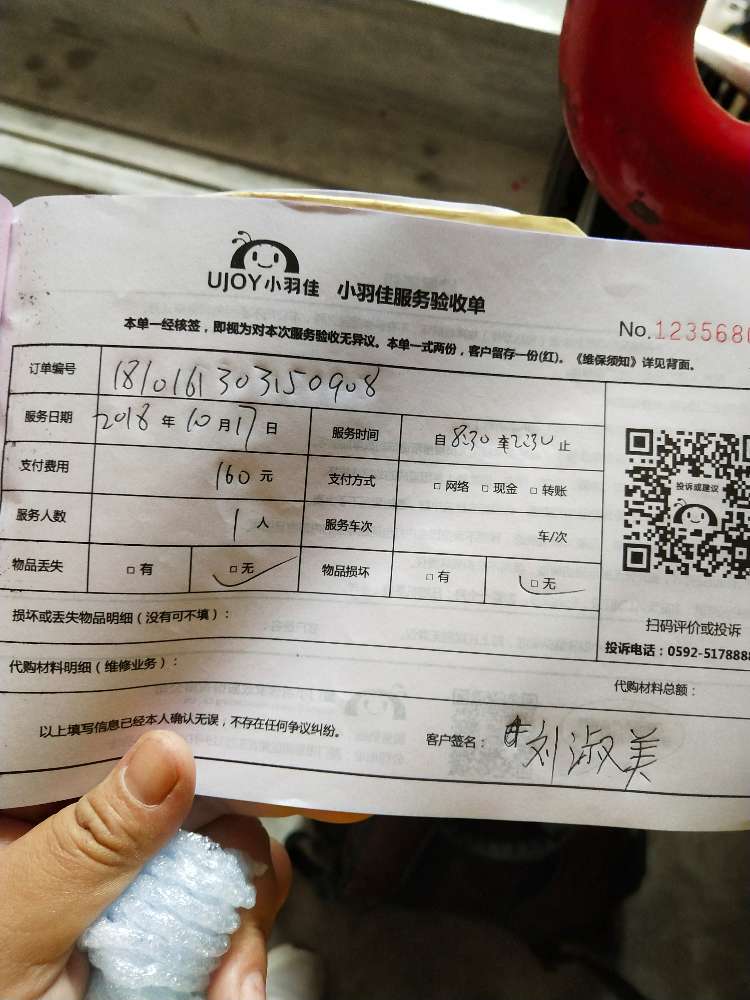 UJOY小羽佳 小羽佳服务验收单
No.1235680
本单一经核签，即视为对本次服务验收无异议。本单一式两份，客户留存一份(红)。《维保须知》详见背面。
订单编号 1810161303150908
服务日期 2018年10月17日 服务时间 自8:30至2:30止
支付费用 160元 支付方式 □网络 □现金 □转账
服务人数 1人 服务车次 车/次
物品丢失 □有 □无 物品损坏 □有 □无
投诉或建议
扫码评价或投诉
投诉电话：0592-5178888
损坏或丢失物品明细（没有可不填）：
代购材料明细（维修业务）： 代购材料总额：
以上填写信息已经本人确认无误，不存在任何争议纠纷。 客户签名： 刘淑美